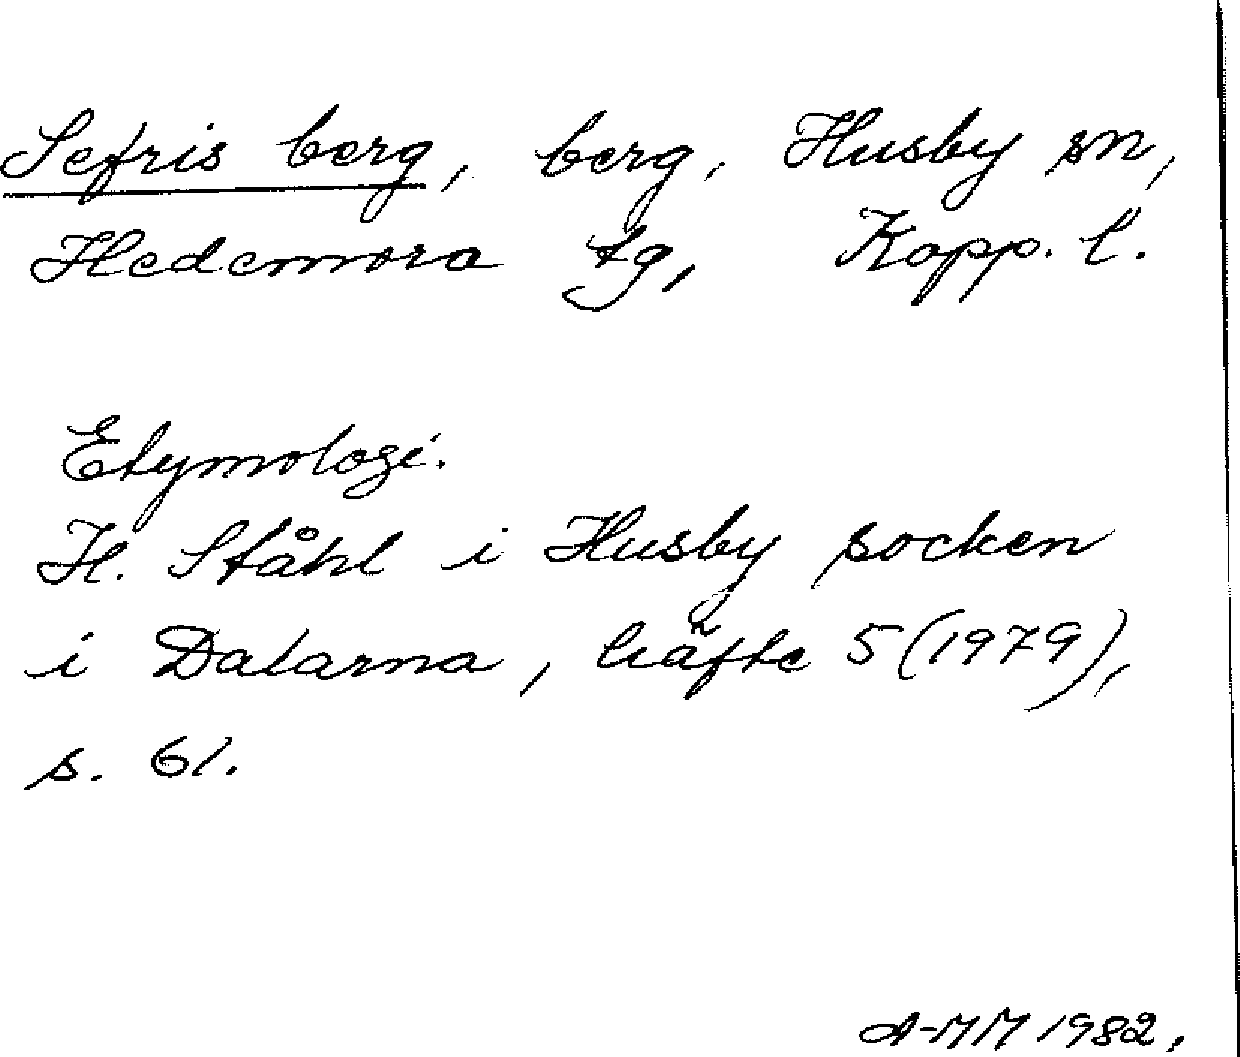 Sefris berg, berg, Husby sn,
Hedemora tg, Kopp. l.
Etymologi.
H. Ståhl i Husby socken
i Dalarna, häfte 5 (1979),
s. 61.
A-MM 1982.